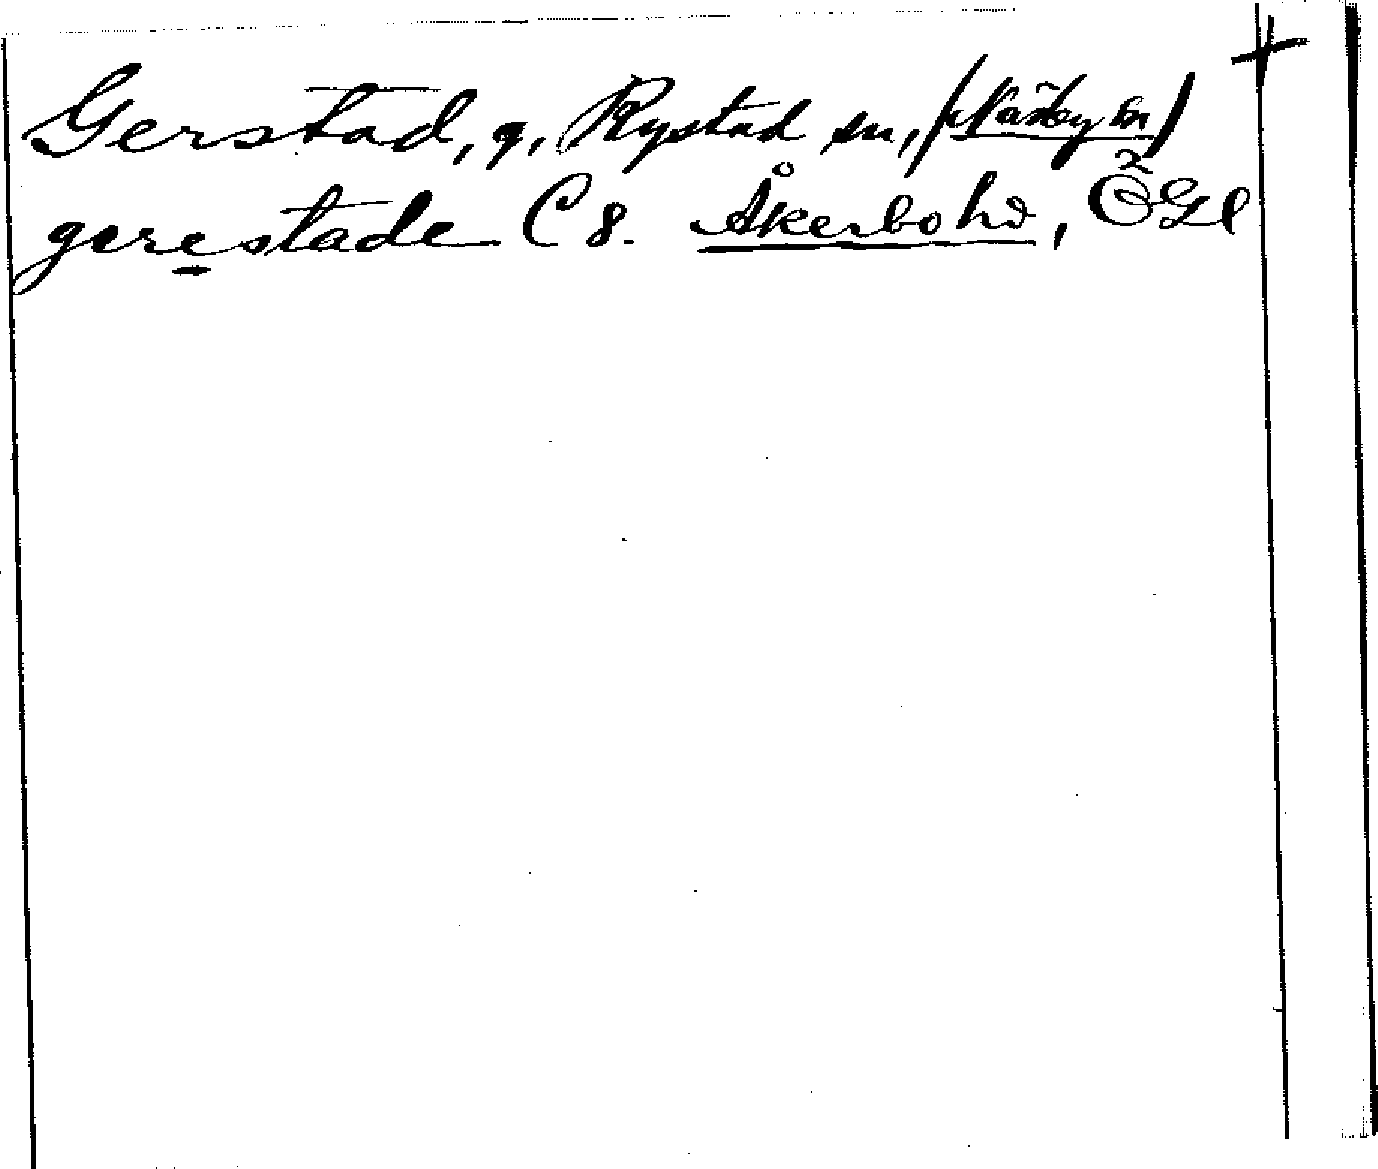 Gerstad, g, Rystad sn, (Näsby sn)
gerestade C 8. Åkerbo hd, ÖGl